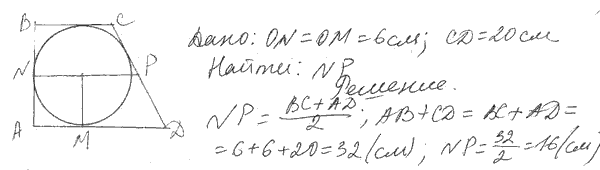 B C
N P
A M D
Дано: ON = OM = 6 см; CD = 20 см
Найти: NP
Решение.
NP = BC + AD / 2; AB + CD = BC + AD =
= 6 + 6 + 20 = 32 (см); NP = 32/2 = 16 (см)